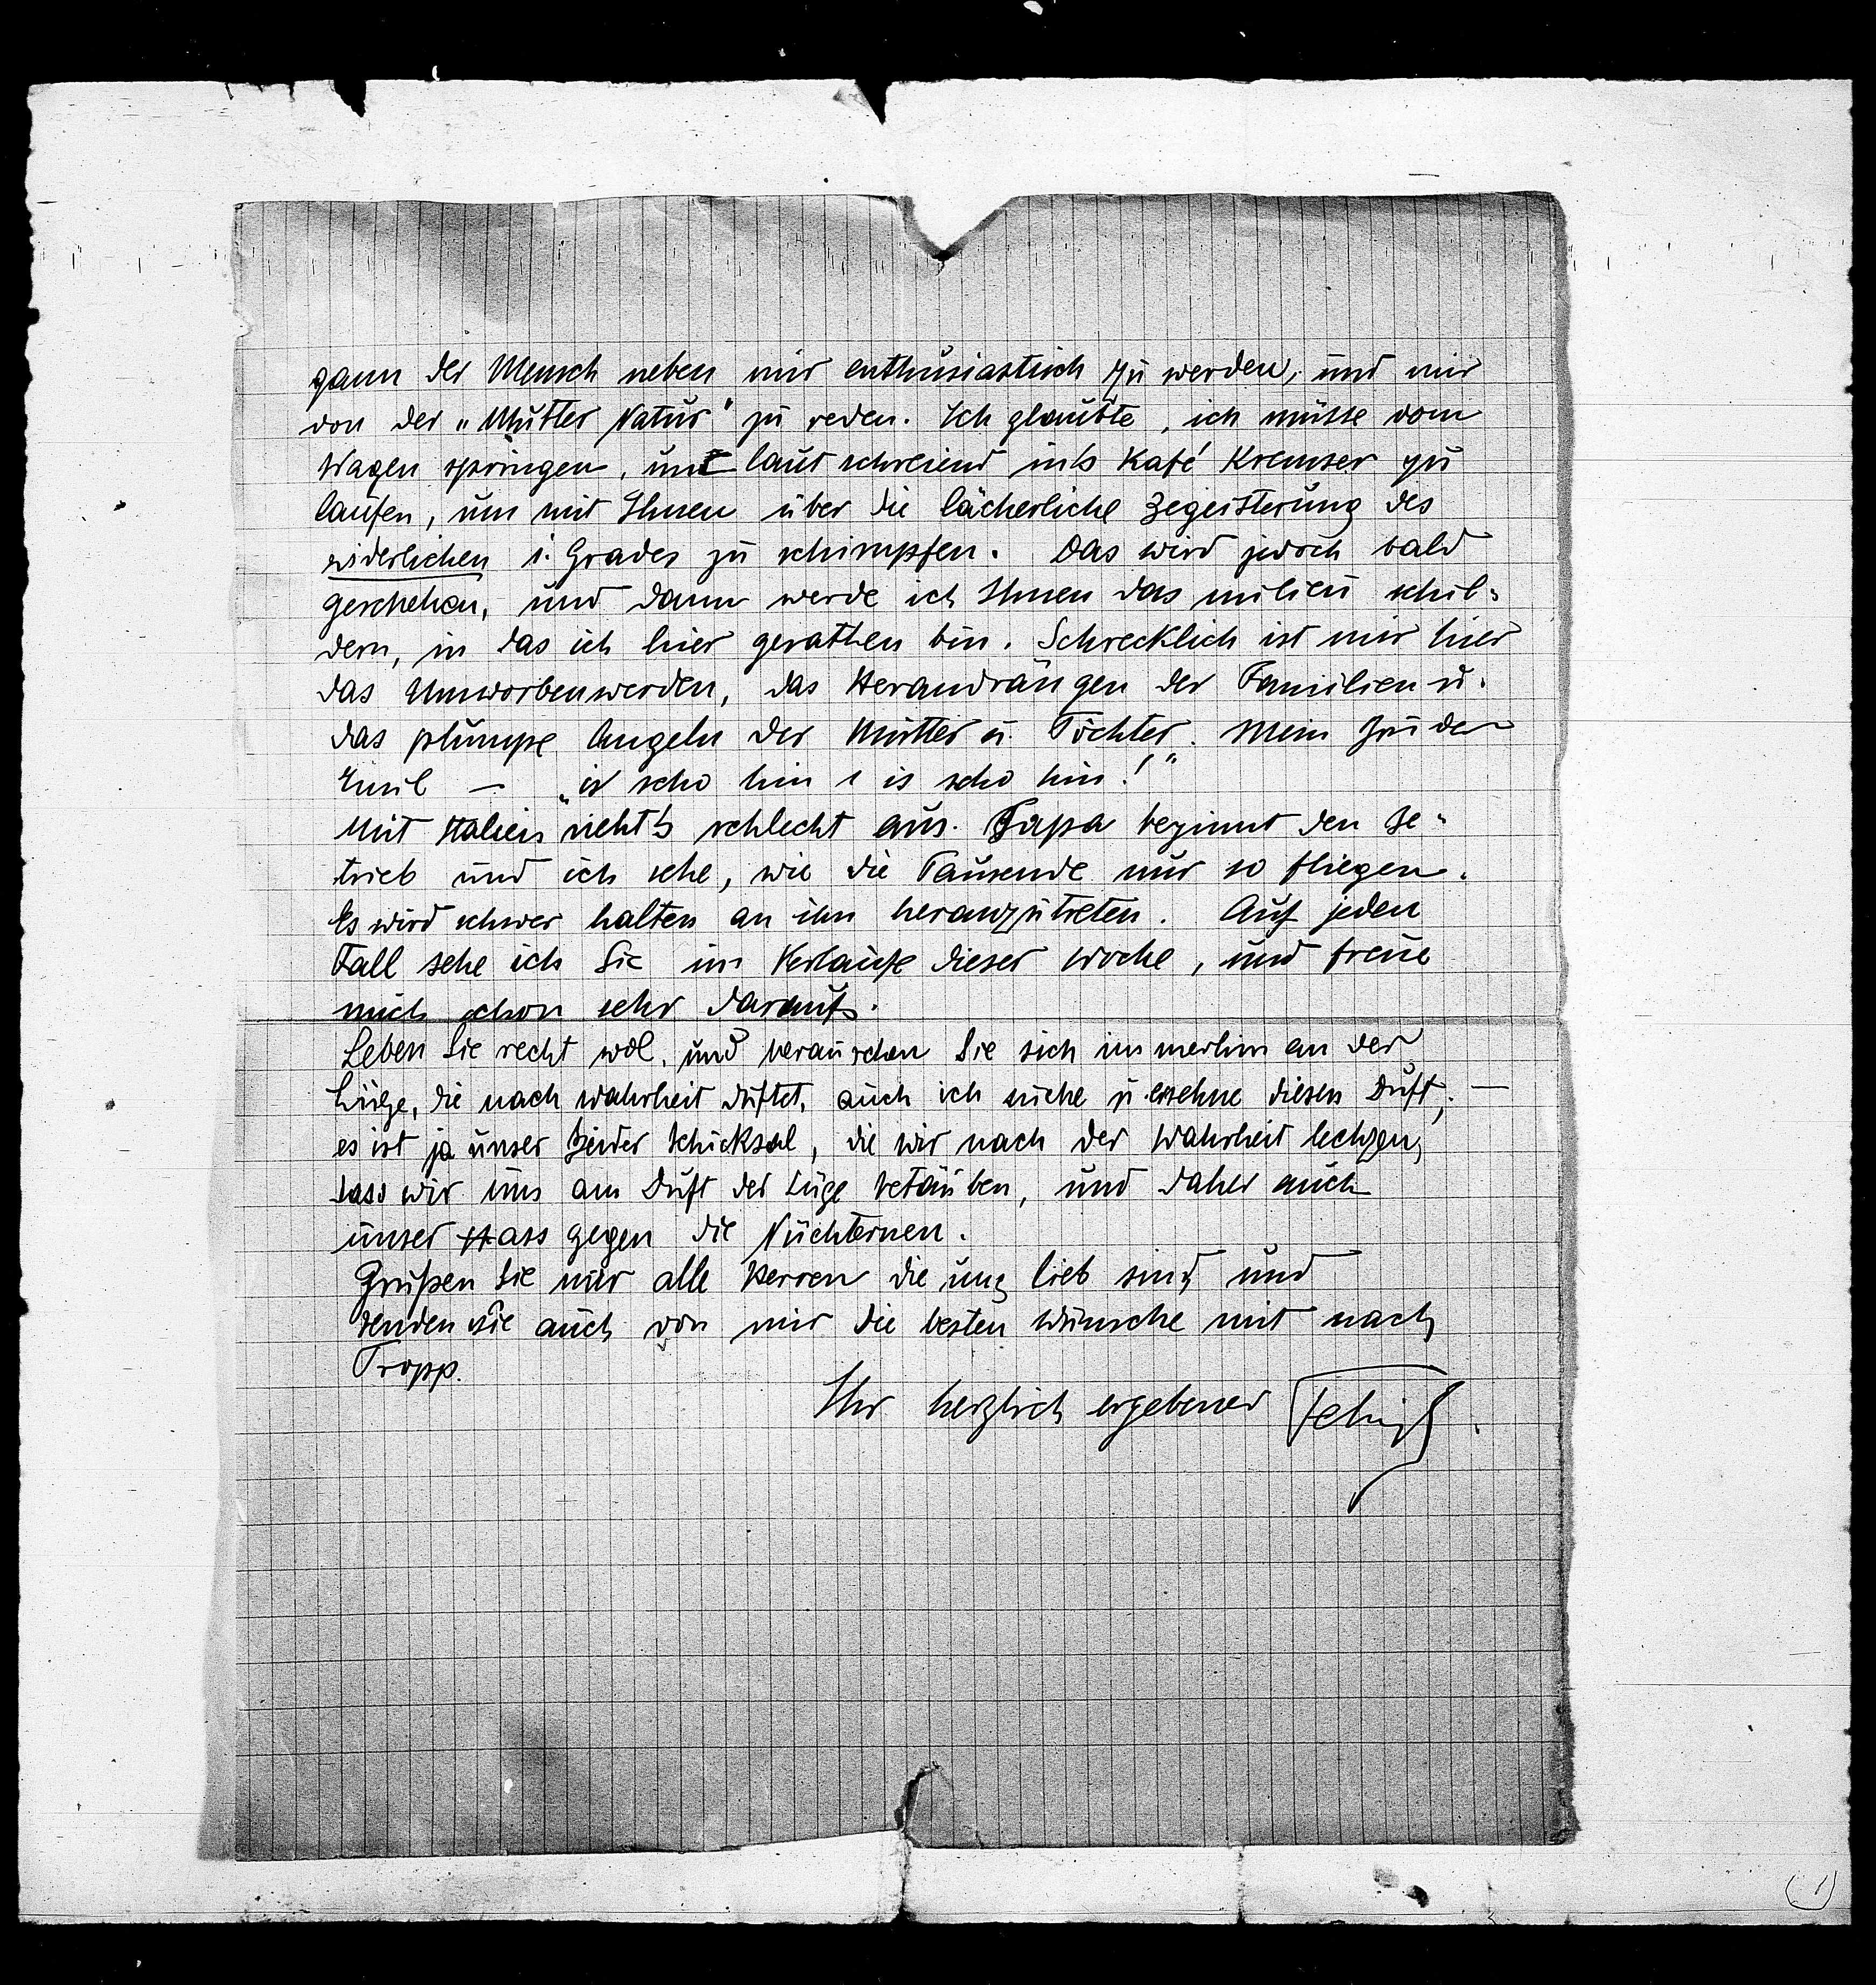 gann der Mensch neben mir enthusiastisch zu werden, und mir
von der „Mutter Natur" zu reden. Ich glaubte, ich müsse vom
Wagen springen, und laut schreiend in's Kafé Kremser zu
laufen, um mit Ihnen über die lächerliche Begeisterung des
widerlichen i. Grades zu schimpfen. Das wird jedoch bald
geschehen, und dann werde ich Ihnen das milieu schil=
dern, in das ich hier gerathen bin. Schrecklich ist mir hier
das Umworbenwerden, das Herandrängen der Familien u.
das plumpe Angeln der Mütter u. Töchter. Mein Bruder
Emil — „is scho hin is scho hin!"
Mit Italien sieht's schlecht aus. Papa beginnt den Be=
trieb und ich sehe, wie die Tausende nur so fliegen.
Es wird schwer halten an ihn heranzutreten. Auf jeden
Fall sehe ich Sie im Verlaufe dieser Woche, und freue
mich schon sehr darauf.
Leben Sie recht wol, und berauschen Sie sich immerhin an der
Lüge, die nach Wahrheit duftet, auch ich suche u. ersehne diesen Duft; —
es ist ja unser Beider Schicksal, die wir nach der Wahrheit lechzen,
dass wir uns am Duft der Lüge betäuben, und daher auch
unser Hass gegen die Nüchternen.
Grüßen Sie mir alle Herren die uns lieb sind und
senden Sie auch von mir die besten Wünsche mit nach
Tropp.
Ihr herzlich ergebener
(1)